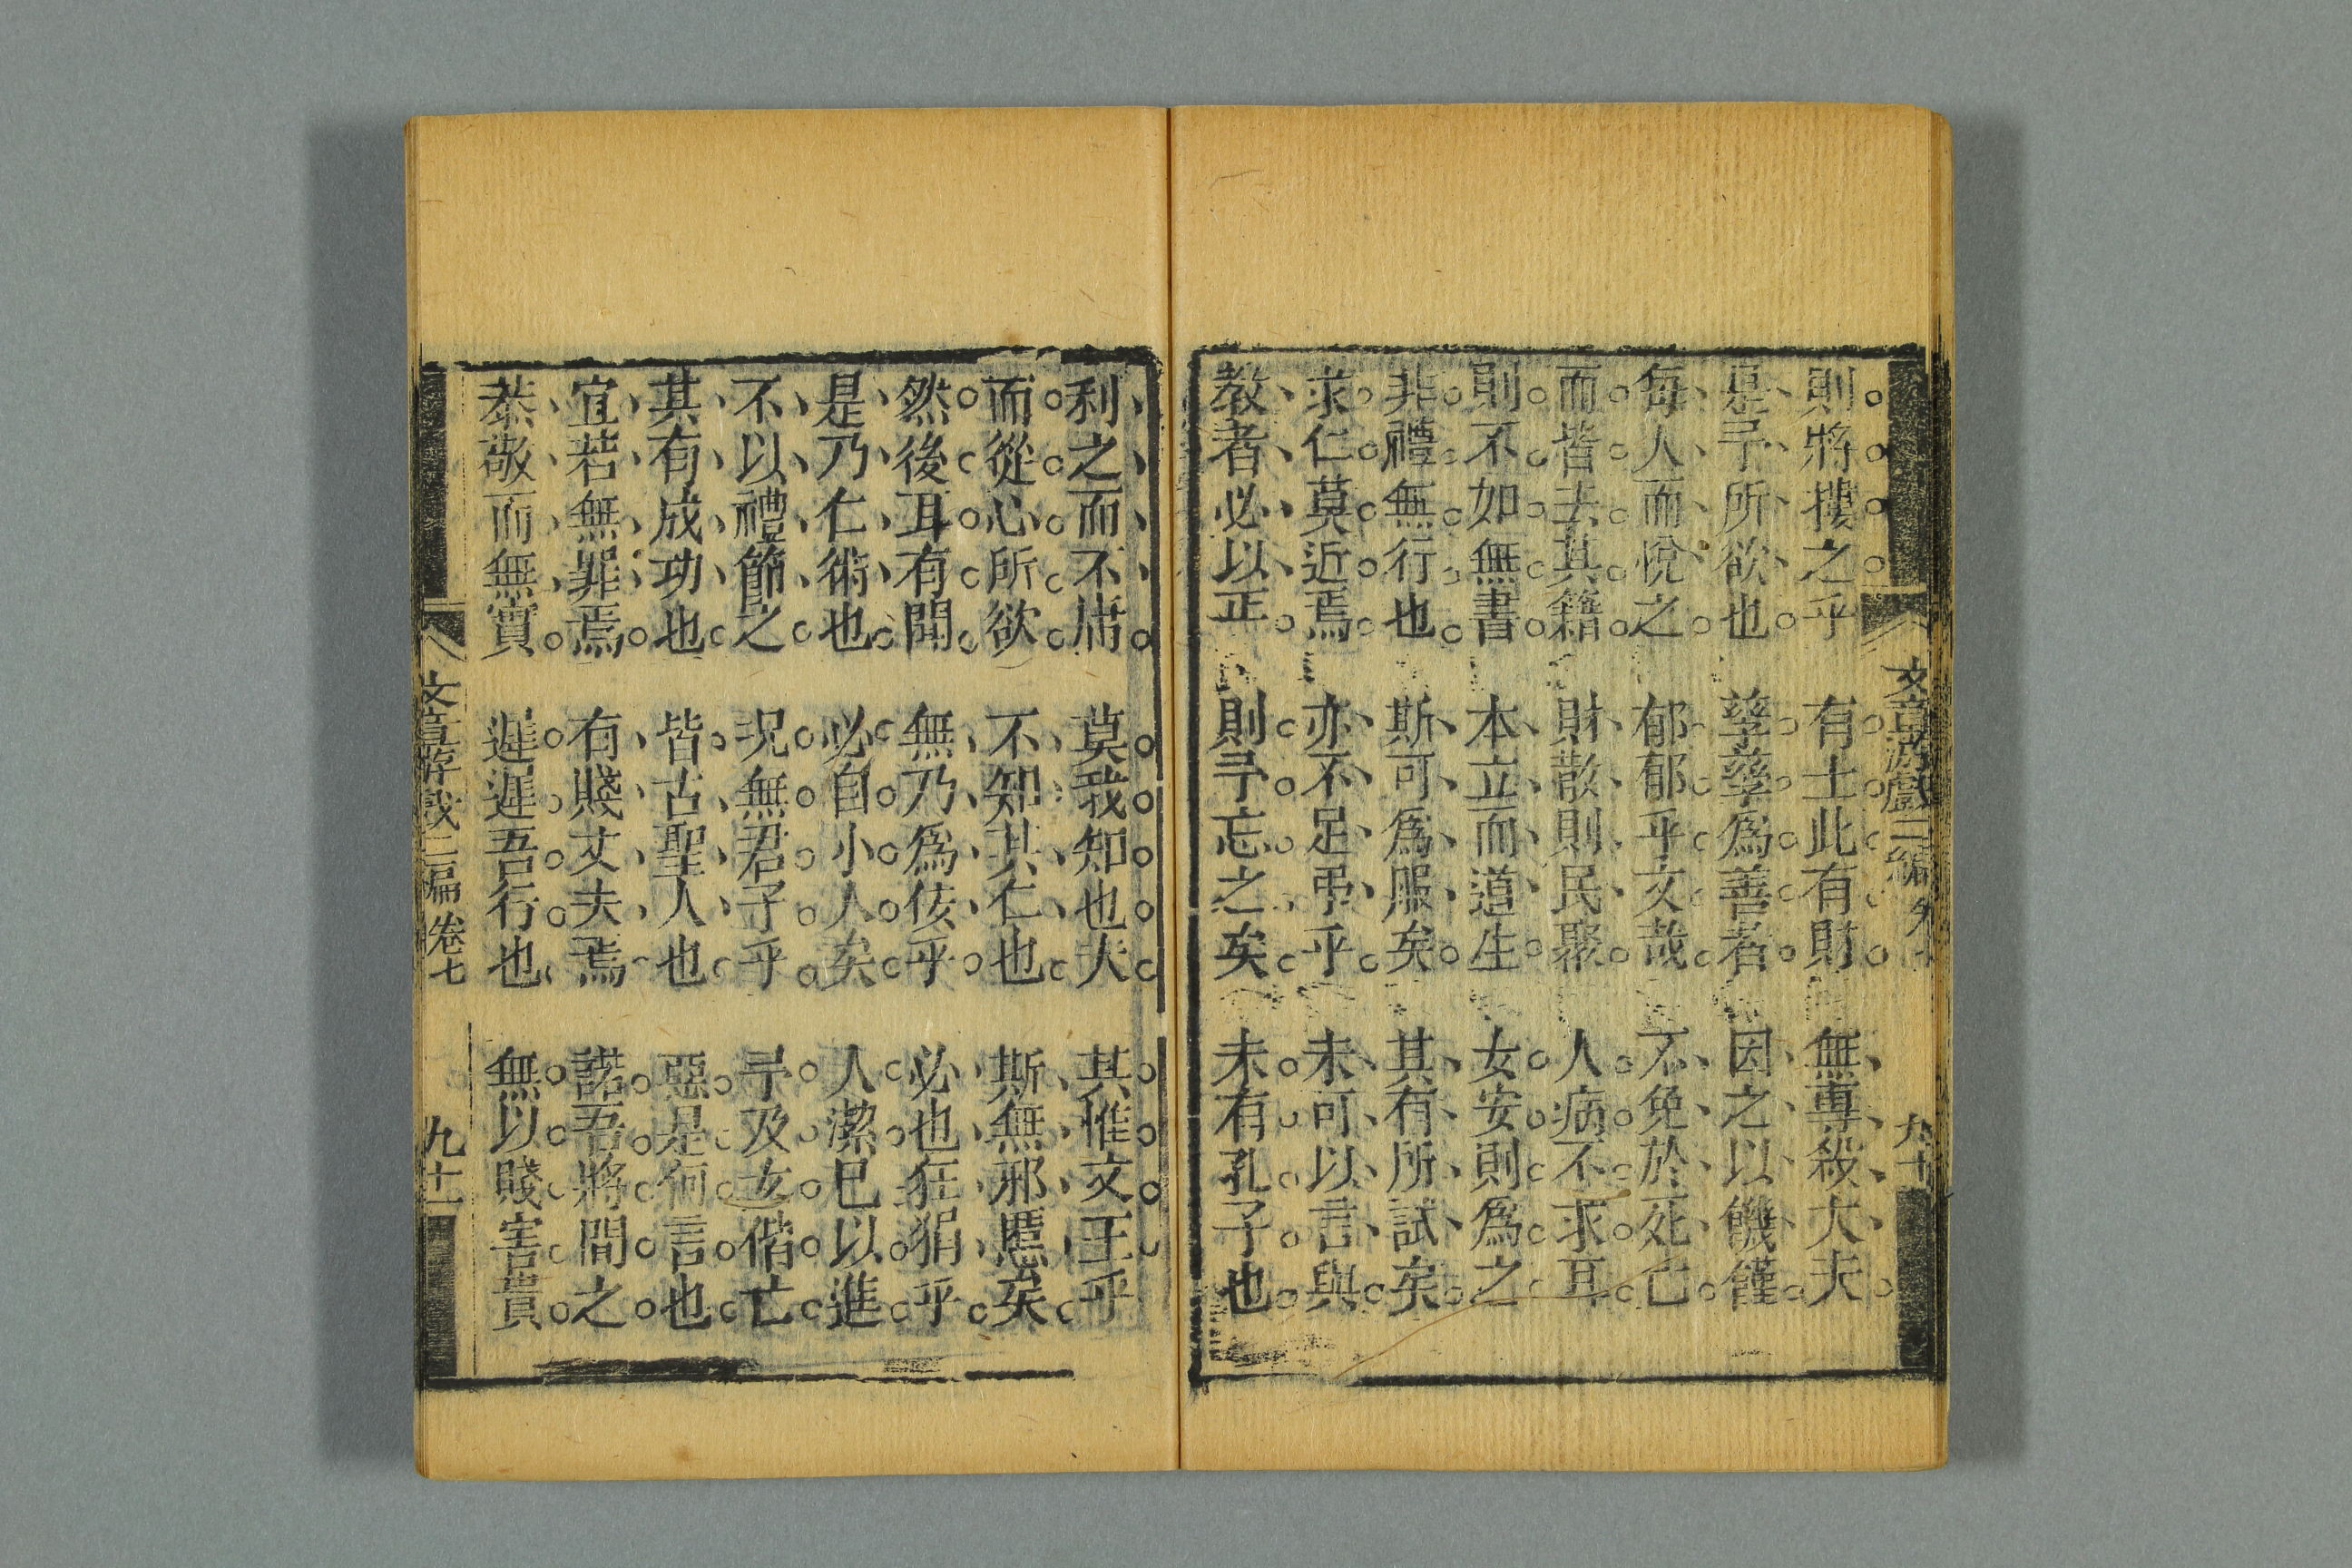 則將摟之乎　有土此有財　無專殺大夫
是予所欲也　孳孳爲善者　因之以饑饉
每人而悅之　郁郁乎文哉　不免於死亡
而皆去其籍　財散則民聚　人病不求耳
則不如無書　本立而道生　女安則爲之
非禮無行也　斯可爲服矣　其有所試矣
求仁莫近焉　亦不足弔乎　未可以言與
教者必以正　則予忘之矣　未有孔子也
利之而不庸　莫我知也夫　其惟文王乎
而從心所欲　不知其仁也　斯無邪慝矣
然後耳有聞　無乃爲佞乎　必也狂狷乎
是乃仁術也　必自小人矣　人潔已以進
不以禮節之　況無君子乎　予及女偕亡
其有成功也　皆古聖人也　惡是何言也
宜若無罪焉　有賤丈夫焉　諾吾將間之
恭敬而無實　遲遲吾行也　無以賤害貴
文章游戲三編　卷七　九十一